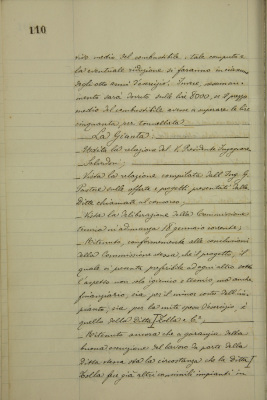 110
zio medio del combustibile; tale computo e
la eventuale riduzione si faranno in ciascuno
degli otto anni d'esercizio. Invece, il canone
sarà di lire 8000, se il prezzo
medio del combustibile avesse a superare le lire
cinquanta per tonnellata.
La Giunta:
Udita la relazione del V. Presidente Ingegnere
Salvadori;
Vista la relazione compilata dall'Ing. G.
sulle offerte e progetti presentati dalle
Ditte chiamate al concorso;
Vista la deliberazione della Commissione
tenuta in adunanza 18 gennaio corrente;
Ritenuto, conformemente alle conclusioni
della Commissione stessa, che il progetto, il
quale si presenta preferibile ad ogni altro sotto
l'aspetto non solo igienico e tecnico, ma anche
finanziario, sia per il minor costo dell'im-
pianto, sia per la mite spesa d'esercizio, è
quello della Ditta Kolla e C.°
Ritenuto ancora che a garanzia della
buona esecuzione del lavoro da parte della
Ditta stessa sta la circostanza che la ditta
Kolla fu già altri consimili impianti in